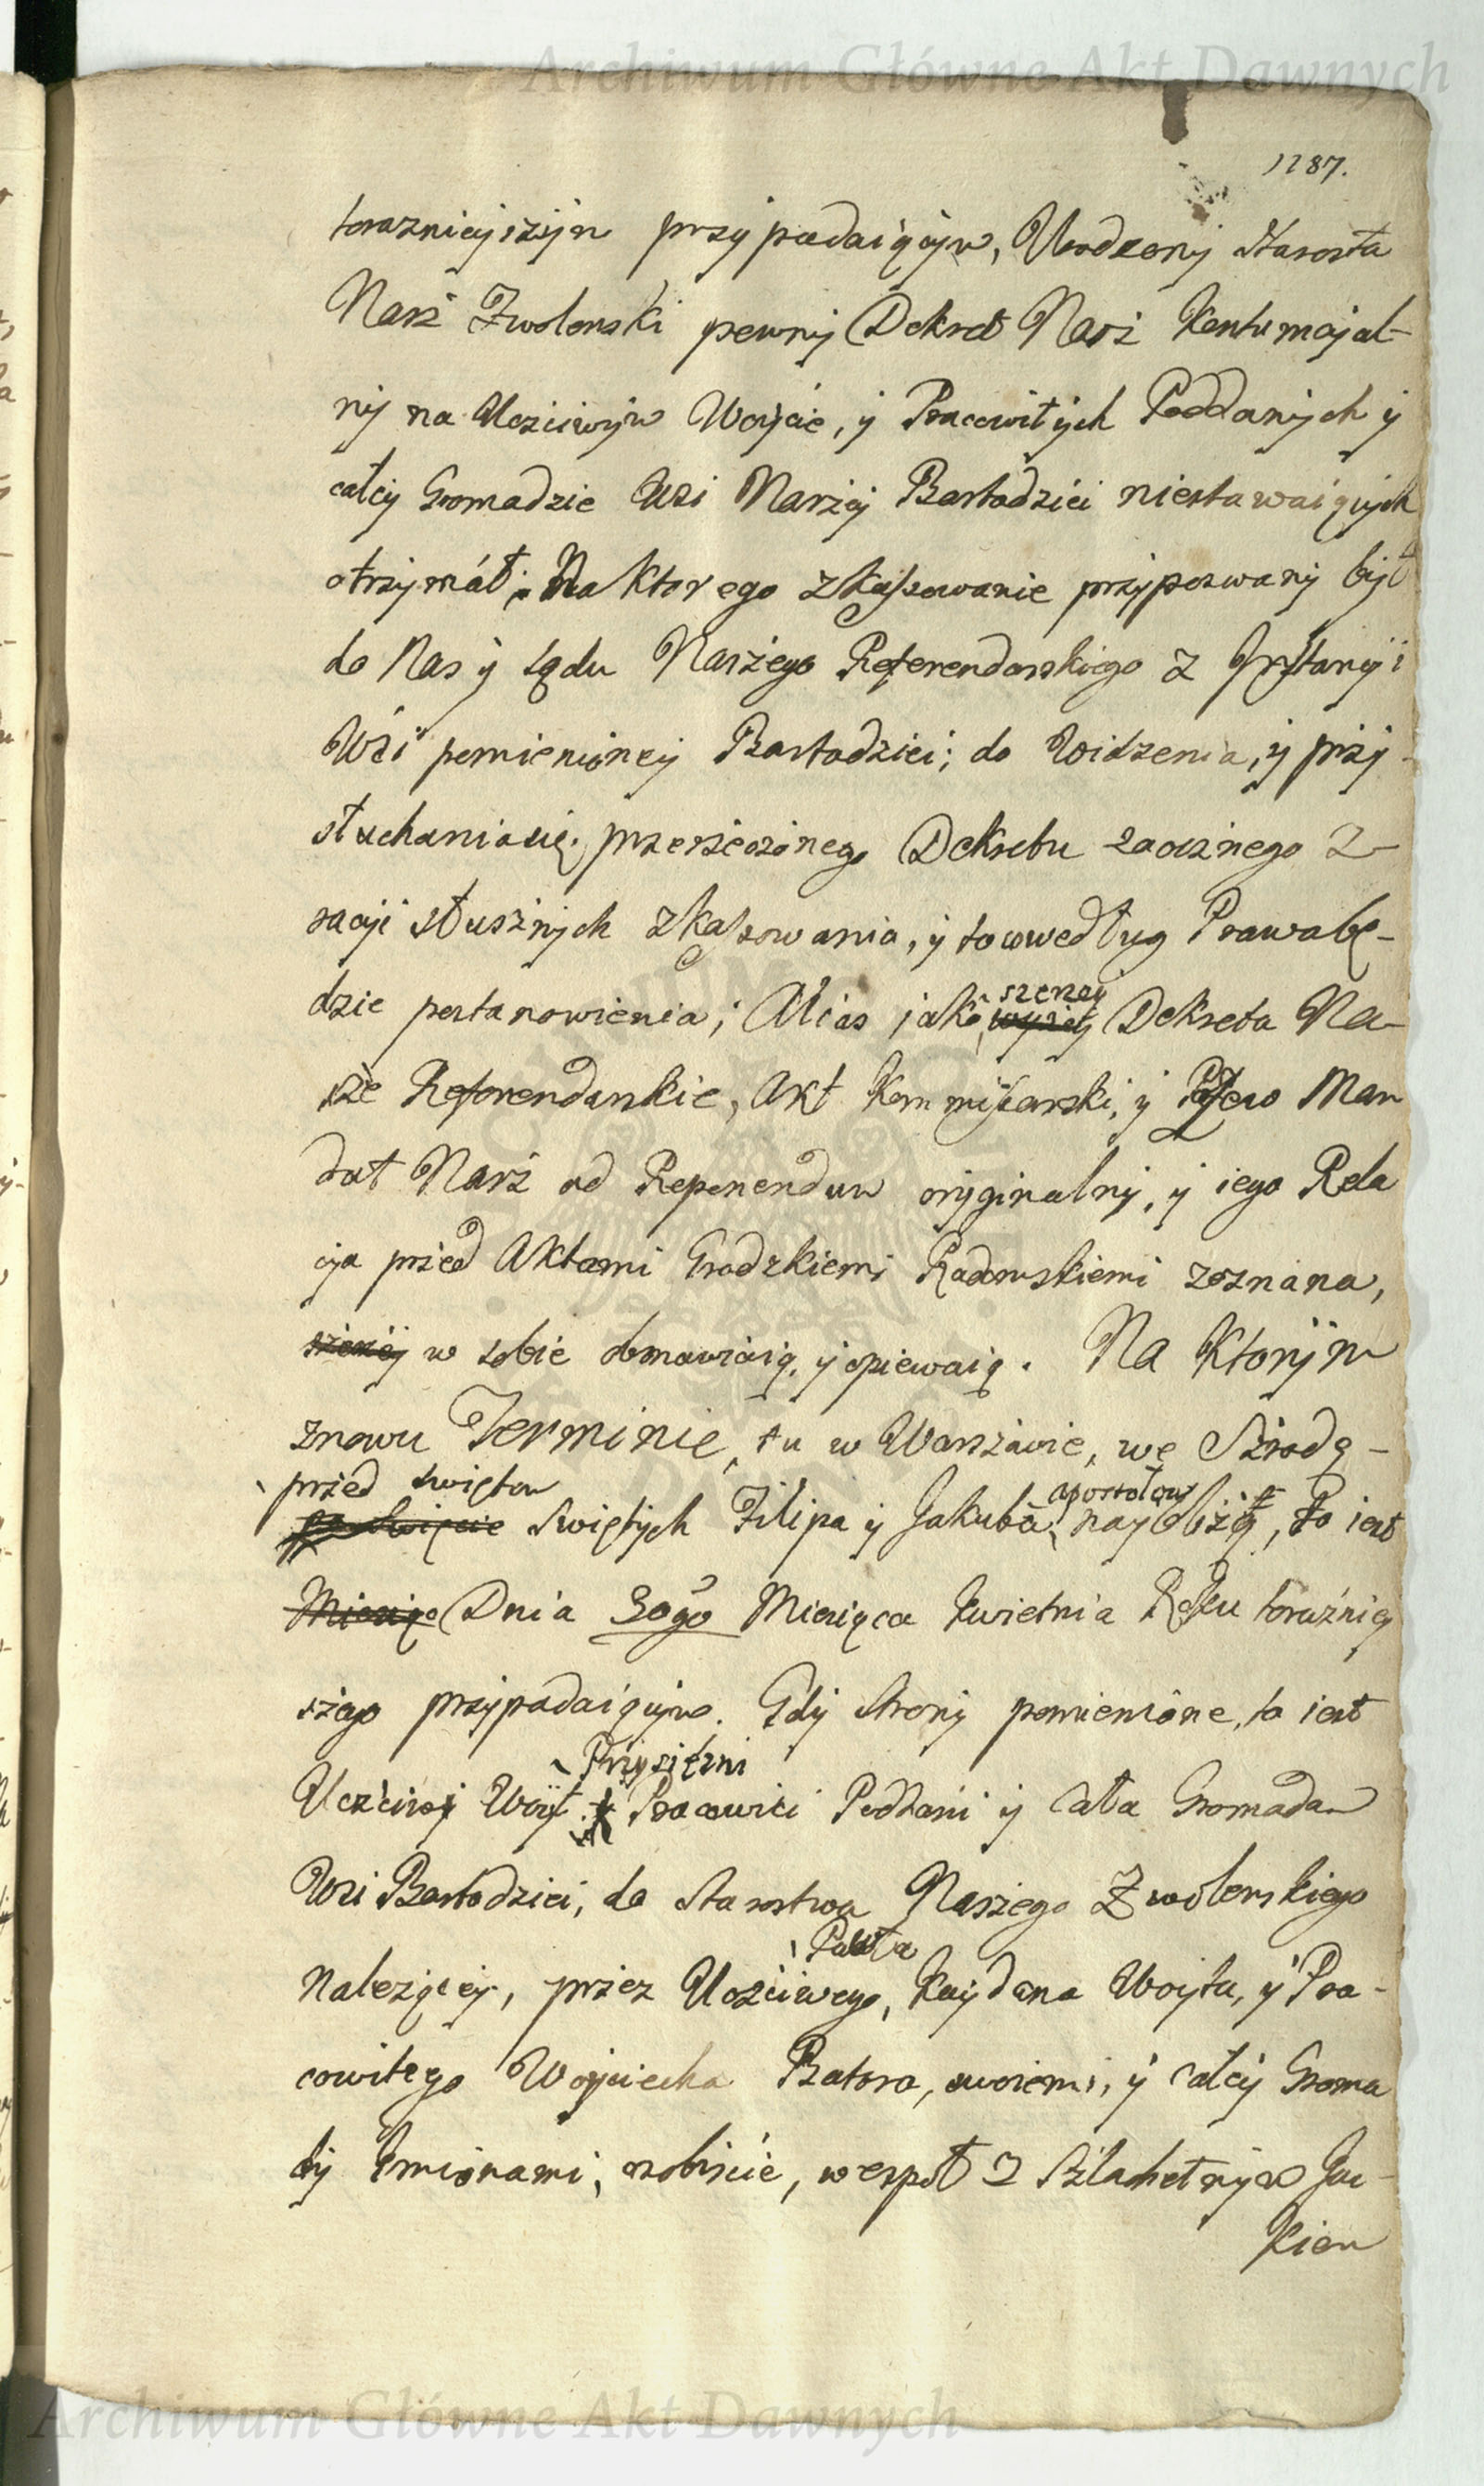 Archiwum Główne Akt Dawnych
1187.
teraznieyszym przypadaiącym, Urodzony Starosta
Nasz Zwolenski pewny Dekret Nasz Kontumacyal-
ny na Uczciwym Woycie, y Pracowitych Poddanych y
całey Gromadzie Wsi Naszey Bartodziei niestawaiących
otrzymał; Na ktorego zkassowanie przypozwany był
do Nas y Sądu Naszego Referendarskiego z Instancyi
Wsi pomienioney Bartodziei; do widzenia, y przy-
słuchania się przerzeczonego Dekretu zaocznego z
racyi słusznych zkassowania, y to co według Prawa bę-
dzie postanowienia; Alias jako szerzey Dekreta Na-
sze Referendarskie, Akt Kommissarski, y Man
dat Nasz ad Reponendum oryginalny, y iego Rela
cya przed Aktami Grodzkiemi Radomskiemi zeznana,
szerzey w sobie obmawiaią, y opiewaią. Na Ktorym
znowu Terminie, tu w Warszawie, we Szrodę -
przed swiętem
Swiętych Filipa y Jakuba apostołow naybliżą, to iest
Miesiąca Dnia 30go Miesiąca Kwietnia Roku teraźniey
szego przypadaiącym. Gdy Strony pomienione, to iest
Uczciwy Woyt Przysiężni Pracowici Poddani y Cała Gromada
Wsi Bartodziei, do Starostwa Naszego Zwolenskiego
Należącey, przez Uczciwego, Pawła Kaydana Woyta, y Pra-
cowitego Woyciecha Batora, swoiemi, y całey Groma
dy Imionami, osobiscie, wespoł z Szlachetnym Jac-
kiem
Archiwum Główne Akt Dawnych